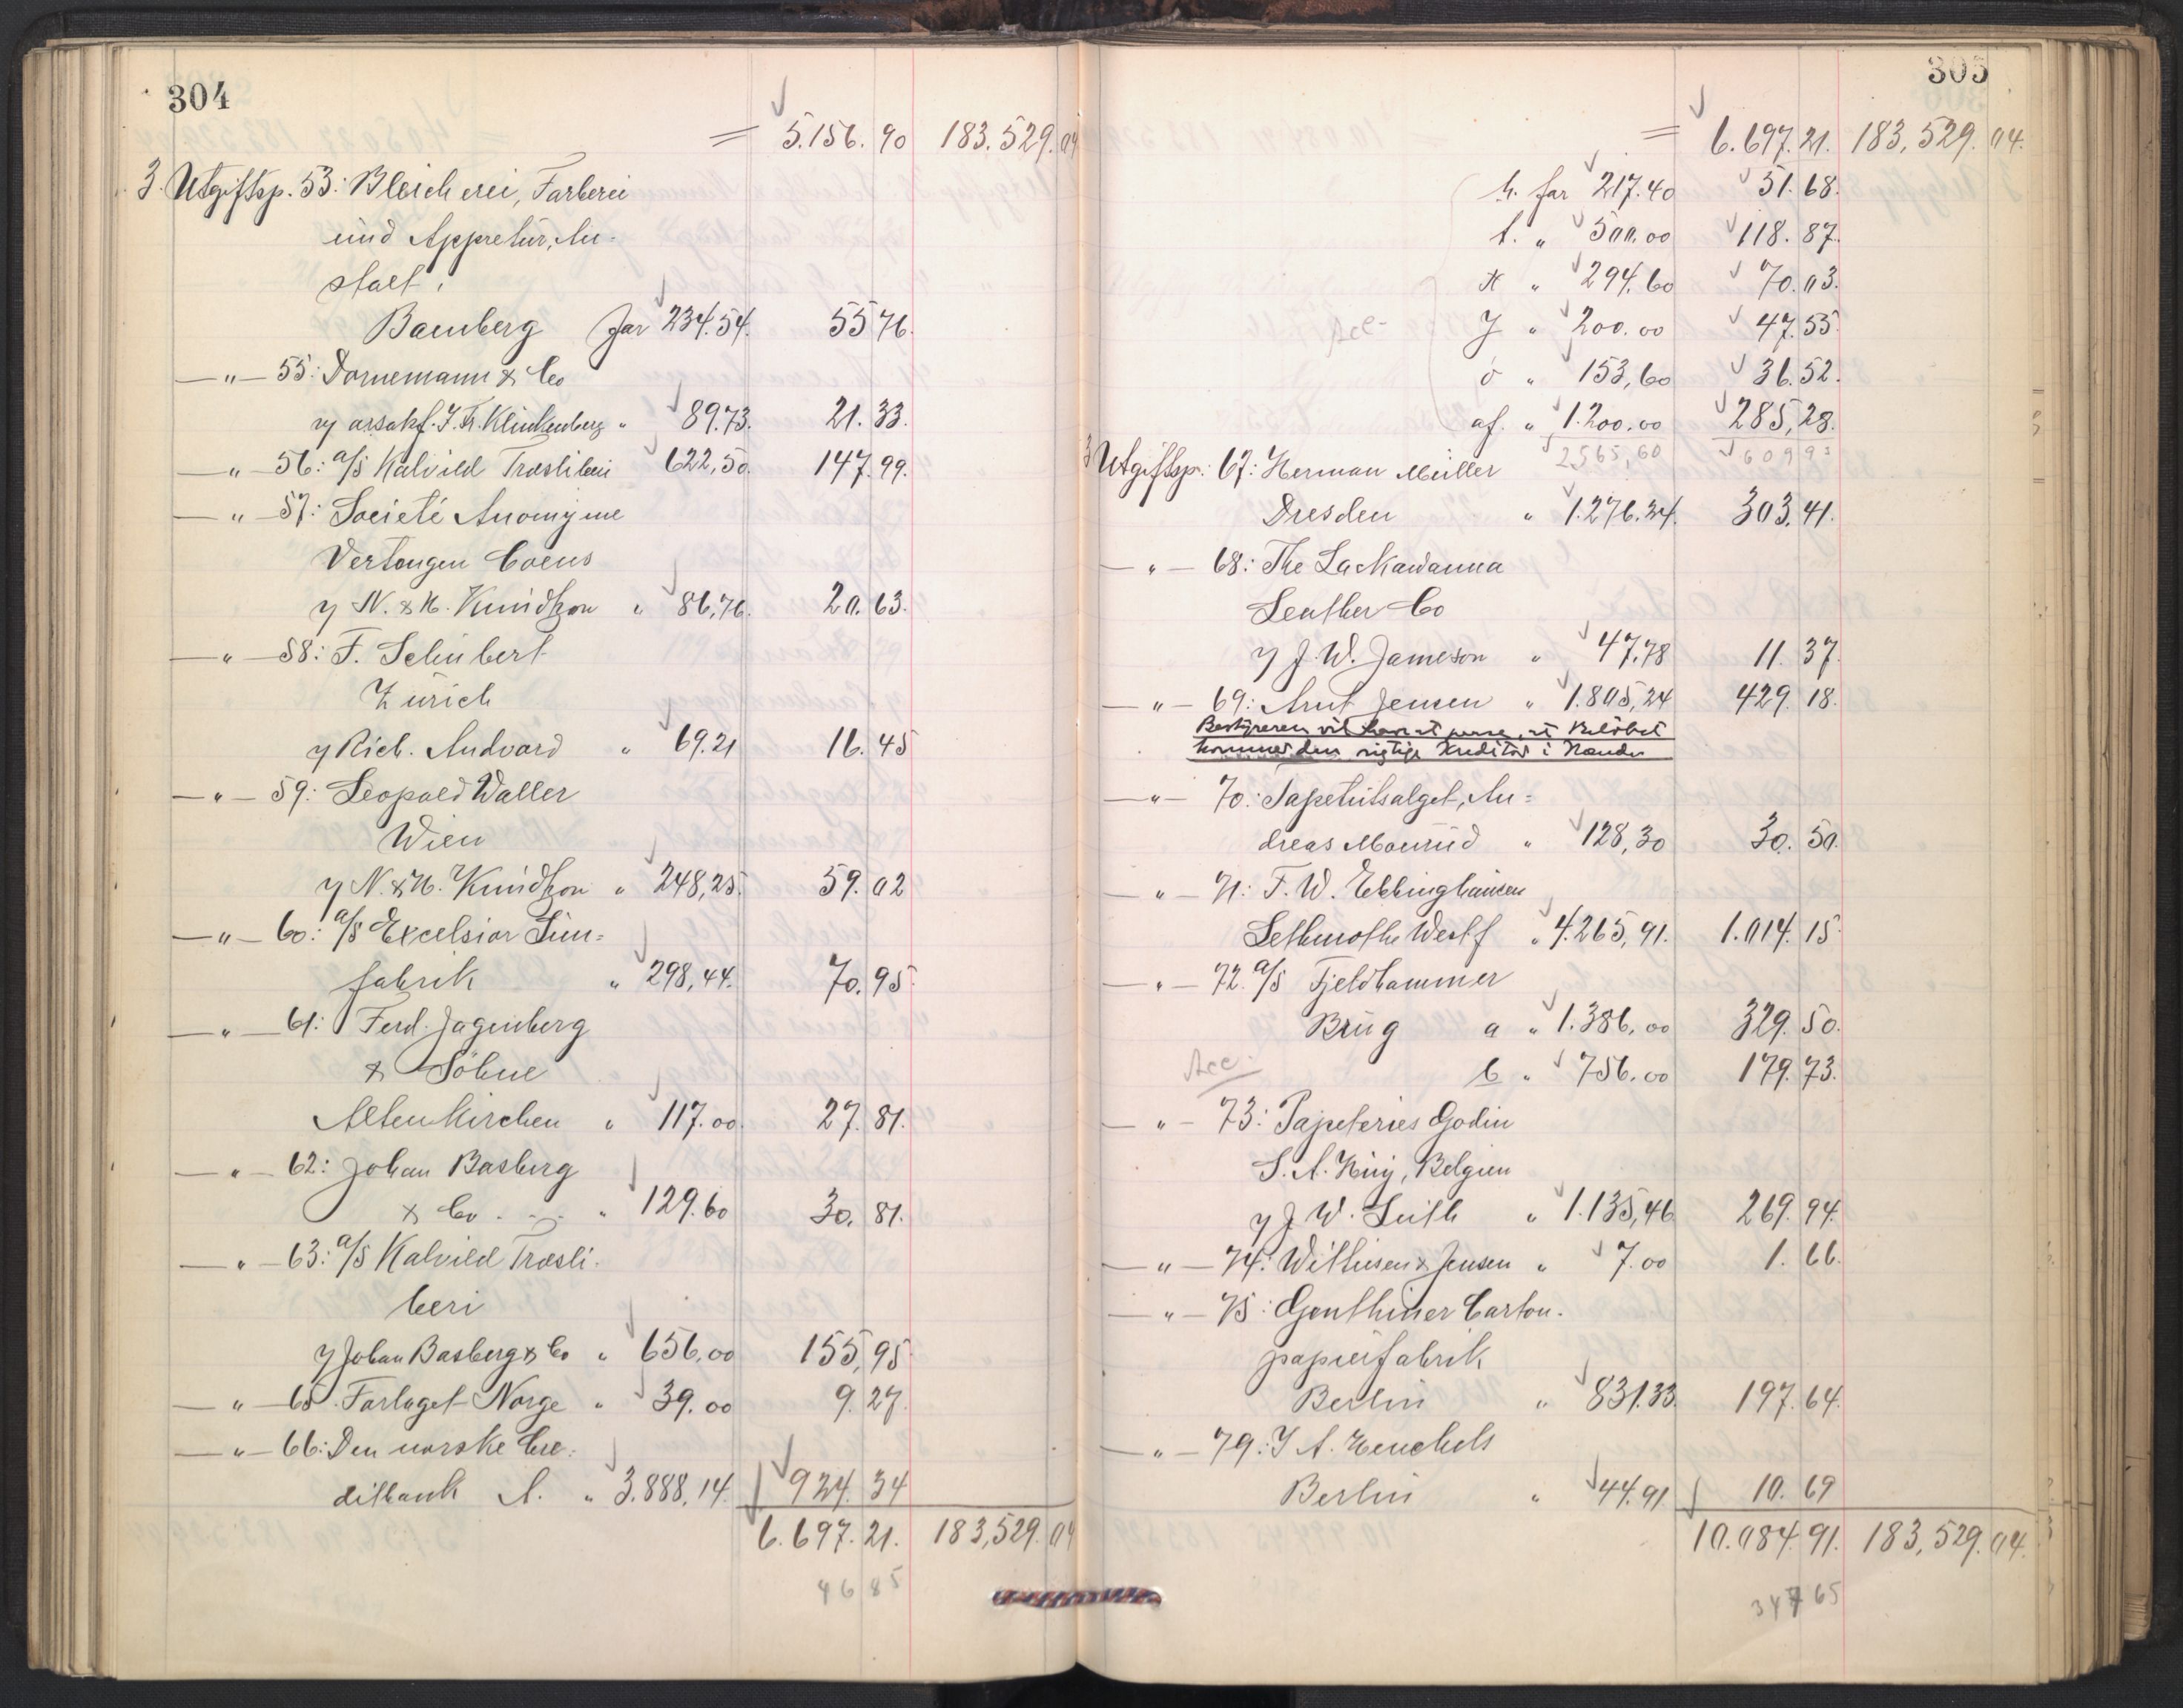 304
= 5.156. 90 183.529.04
3. Utgiftsp. 53: Bleicherei, Farberei
und Appretur, An-
stalt,
Bamberg for 234.54. 55 76.
—"— 55: Dornemann & Co
v/ orsakf. J. Fr. Klinkenberg " 89.73. 21. 33.
—"— 56: a/s Kalvild Træsliberi 622,50. 147. 99.
—"— 57: Societé Anonyme
Vertongen Goens
v/ N. & H. Knudtzon " 86,76. 20. 63.
—"— 58: F. Schubert
Zürich
v/ Rich. Andvord " 69.21 16. 45
—"— 59: Leopold Waller
Wien
v/ N. & H. Knudtzon " 248,25. 59. 02
—"— 60: a/s Excelsior Lim=
fabrik " 298,44. 70. 95.
—"— 61: Ferd. Jagenberg
& Söhne
Altenkirchen " 117.00. 27. 81.
—"— 62: Johan Basberg
& Co - - - " 129.60 30. 81.
—"— 63: a/s Kalvild Træsli-
beri
v/ Johan Basberg & Co " 656,00 155,95.
—"— 65. Forlaget Norge " 39.00 9. 27.
—"— 66: Den norske Cre-
ditbank A. " 3.888,14. 924. 34
6.697. 21. 183,529.04
46 85
305
= 6.697. 21. 183,529.04.
h. for 217.40 51. 68.
t. " 500.00 118. 87.
x " 294.60 70. 03.
Acc- y " 200.00 47. 55.
ö " 153,60 36. 52.
af. " 1.200.00 285,28.
2565,60 609 93
3 Utgiftsp. 67: Herman Müller
Dresden " 1.276.34. 303. 41.
—"— 68: The Lackawanna
Leather Co
v/ J. W. Jameson " 47,78 11. 37.
—"— 69: Arnt Jensen " 1.805,24 429. 18.
Bestyreren vil have at passe, at Beløbet
kommer den rigtige Kreditor i Hænde
—"— 70: Tapetutsalget, An=
dreas Mourud " 128,30 30. 50.
—"— 71: F. W. Ebbinghausen
Lethmathe Westf " 4.265,91. 1.014. 15.
—"— 72. a/s Fjeldhammer
Brug a " 1.386,00 329. 50.
Acc- b " 756.00 179. 73.
—"— 73: Papeteries Godin
S. A. Huy, Belgien
v/ J. W. Leith " 1.135,46 269. 94.
—"— 74: Withusen & Jensen " 7.00 1. 66.
—"— 75: Genthiner Carton-
papierfabrik
Berlin " 831.33. 197. 64.
—"— 79: J A. Henckels
Berlin " 44.91 10. 69
10.084. 91. 183,529.04.
347 65